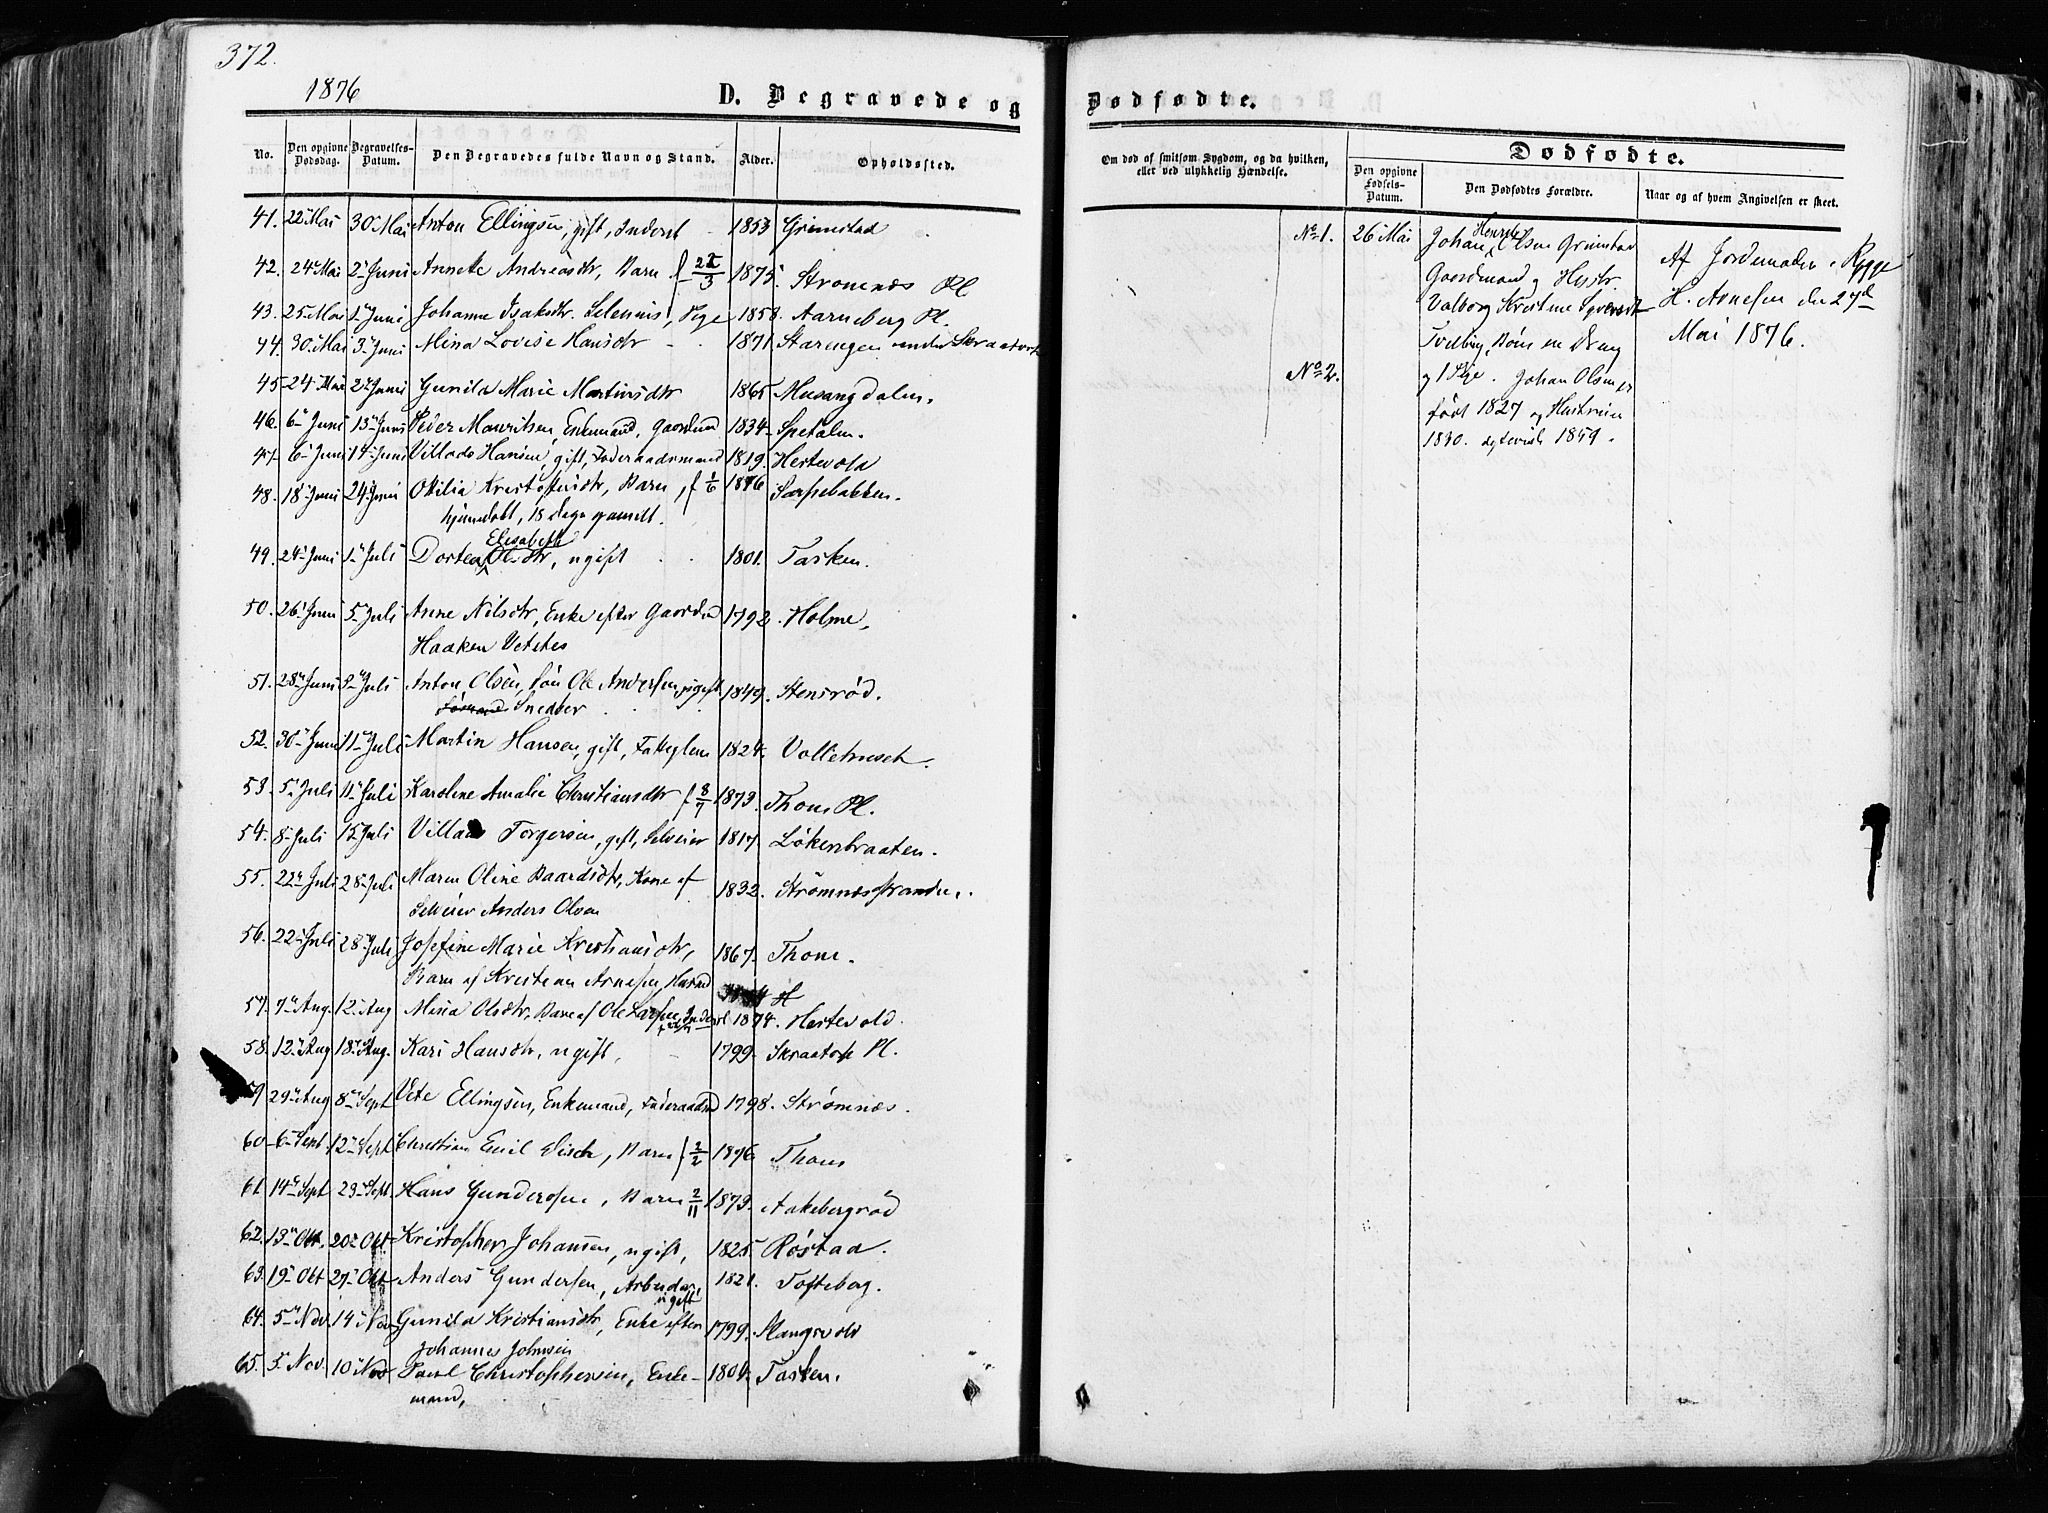 372.
1876
D. Begravede og
No.
Den opgivne Dødsdag.
Begravelses-Datum.
Den Begravedes fulde Navn og Stand.
Alder.
Opholdssted.
41. 22 Mai 30 Mai Anton Ellingsen, gift, Inderst 1853 Grimstad
42. 24 Mai 2 Juni Annette Andreasdtr, Barn f 1875. Strømnæs Pl
43. 25 Mai 1 Juni Johanne Isaksdtr. Selenius, Pige 1858. Aarneberg Pl.
44. 30 Mai 3 Juni Mina Lovise Hansdtr 1871 Starengen under Skraatorp
45 24 Mai 2 Juni Gunila Marie Martinsdtr 1865 Musangdalen.
46. 6 Juni 13 Juni Peder Mauritsen, Enkemand, Gaardmd 1834 Spetalen.
47 6 Juni 14 Juni Villads Hansen, gift, Føderaadsmand 1819. Hestevold
48. 18 Juni 24 Juni Otilia Kristofersdtr, Barn, f 1/6 1876 Sarpebakken.
hjemedøbt, 18 Dage gammelt.
Elisabeth
49. 24 Juni 1 Juli Dortea Olsdtr, ugift 1801. Tasken.
50. 26 Juni 5 Juli Anne Nilsdtr, Enke efter Gaardmd 1792. Holme,
Haaken Vetetes
51. 28 Juni 9 Juli Anton Olsen, søn Ole Andersen, ugift 1849. Stensrød.
Snedker
52. 30 Juni 11 Juli Martin Hansen, gift, Fattiglem 1824. Vollehusch.
53. 5 Juli 11 Juli Karoline Amalie Christiansdtr f 8/7 1873. Thom Pl.
54. 8 Juli 15 Juli Villads Torgersen, gift, Selveier 1817. Løkenbraaten.
55. 22 Juli 28 Juli Maren Oline Baardsdtr, Kone af 1832. Strømnæsstranden.
Selveier Anders Olsen
56. 22 Juli 28 Juli Josefine Marie Kristiansdtr, 1867. Thom.
Barn af Kristian Arnesen, Husmd
57. 7 Aug. 12 Aug Mina Olsdtr, Barn af Ole Larsen, Inderst 1874. Hestevold.
58. 12 Aug 18 Aug. Kari Hansdtr, ugift, 1799. Skraatorp Pl.
59 29 Aug 8 Sept Vete Ellingsen, Enkemand, Føderaadsmd 1798. Strømnæs.
60 6 Sept 12 Sept Christian Emil Disch, Barn f 2/2 1876 Thom
61 14 Sept 23 Sept. Hans Gundersen, Barn 2/11 1873. Aakebergrød
62. 13 Okt. 20 Okt. Kristopher Johansen, ugift, 1825. Røstad.
63. 19 Okt 27 Okt Anders Gundersen, Arbeider, 1821. Tofteberg.
ugift
64. 5 Nov. 14 Nov Gunila Kristiansdtr, Enke efter 1799. Slangsvold
Johannes Johnsen
65. 5 Nov. 10 Nov Poul Christophersen, Enke- 1804. Tasken.
mand,
Dødfødte.
Om død af smitsom Sygdom, og da hvilken, eller ved ulykkelig Hændelse.
Dødfødte.
Den opgivne Fødsels-Datum.
Den Dødfødtes Forældre.
Naar og af hvem Angivelsen er skeet.
No 1. 26 Mai Johan Henrik Olsen Grimstad
Gaardmand og Hustr.
Valborg Kristine Syversdtr
Tvilling, Børn en Dreng
No 2. og 1 Pige. Johan Olsen er
født 1827 og Hustruen
1830. 1859.
Af Jordemoder i Rygge
H. Arnesen den 27de
Mai 1876.